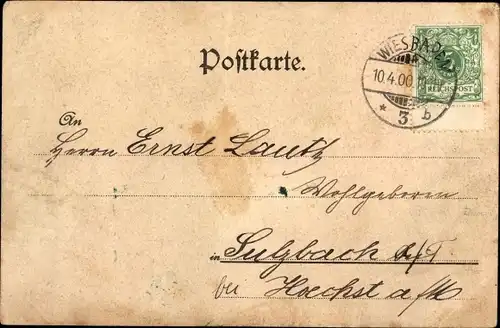 Postkarte.
WIESBADEN
10.4.00
* 3 b
REICHSPOST
An
Herrn Ernst Lautz
Wohlgeboren
in Sulzbach a/T
bei Hoechst a/M